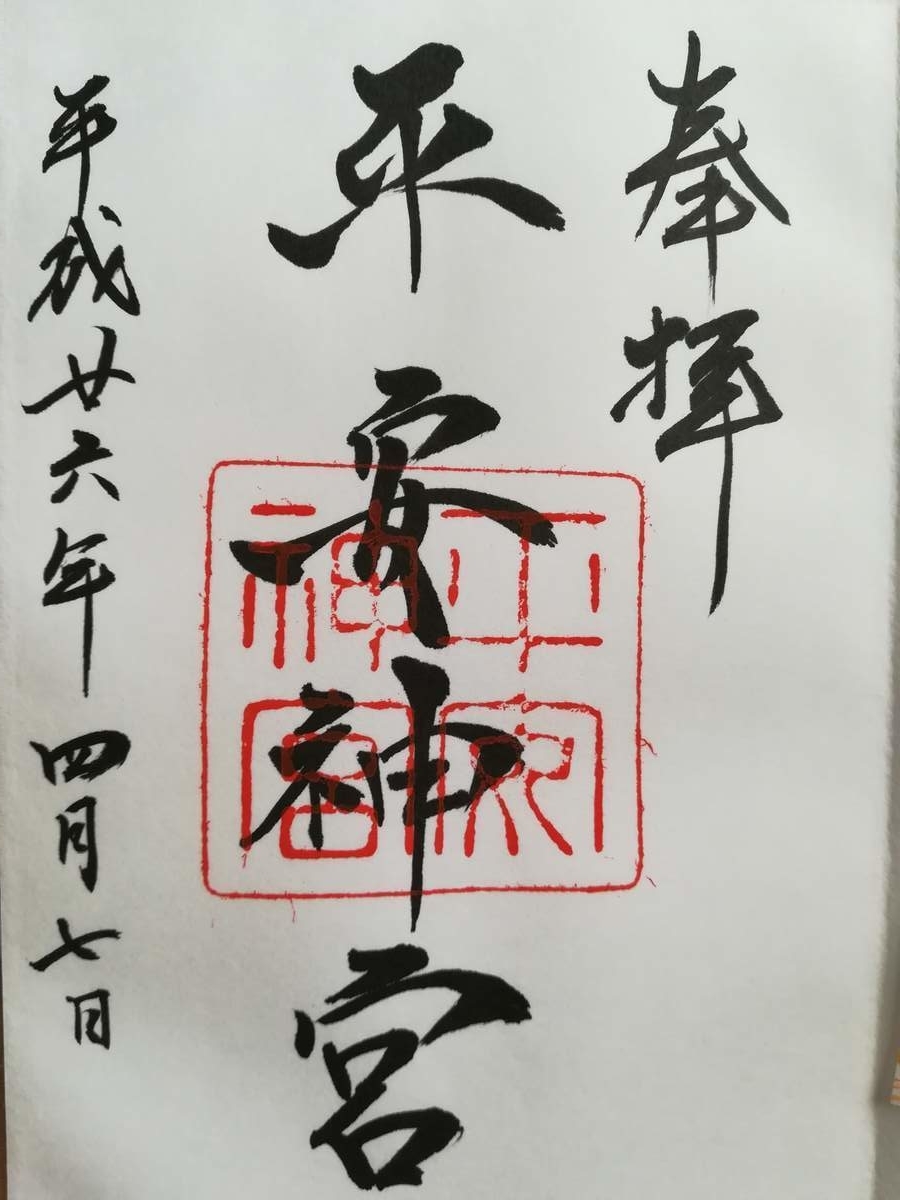 奉拝
平安神宮
平安神宮
平成廿六年四月七日